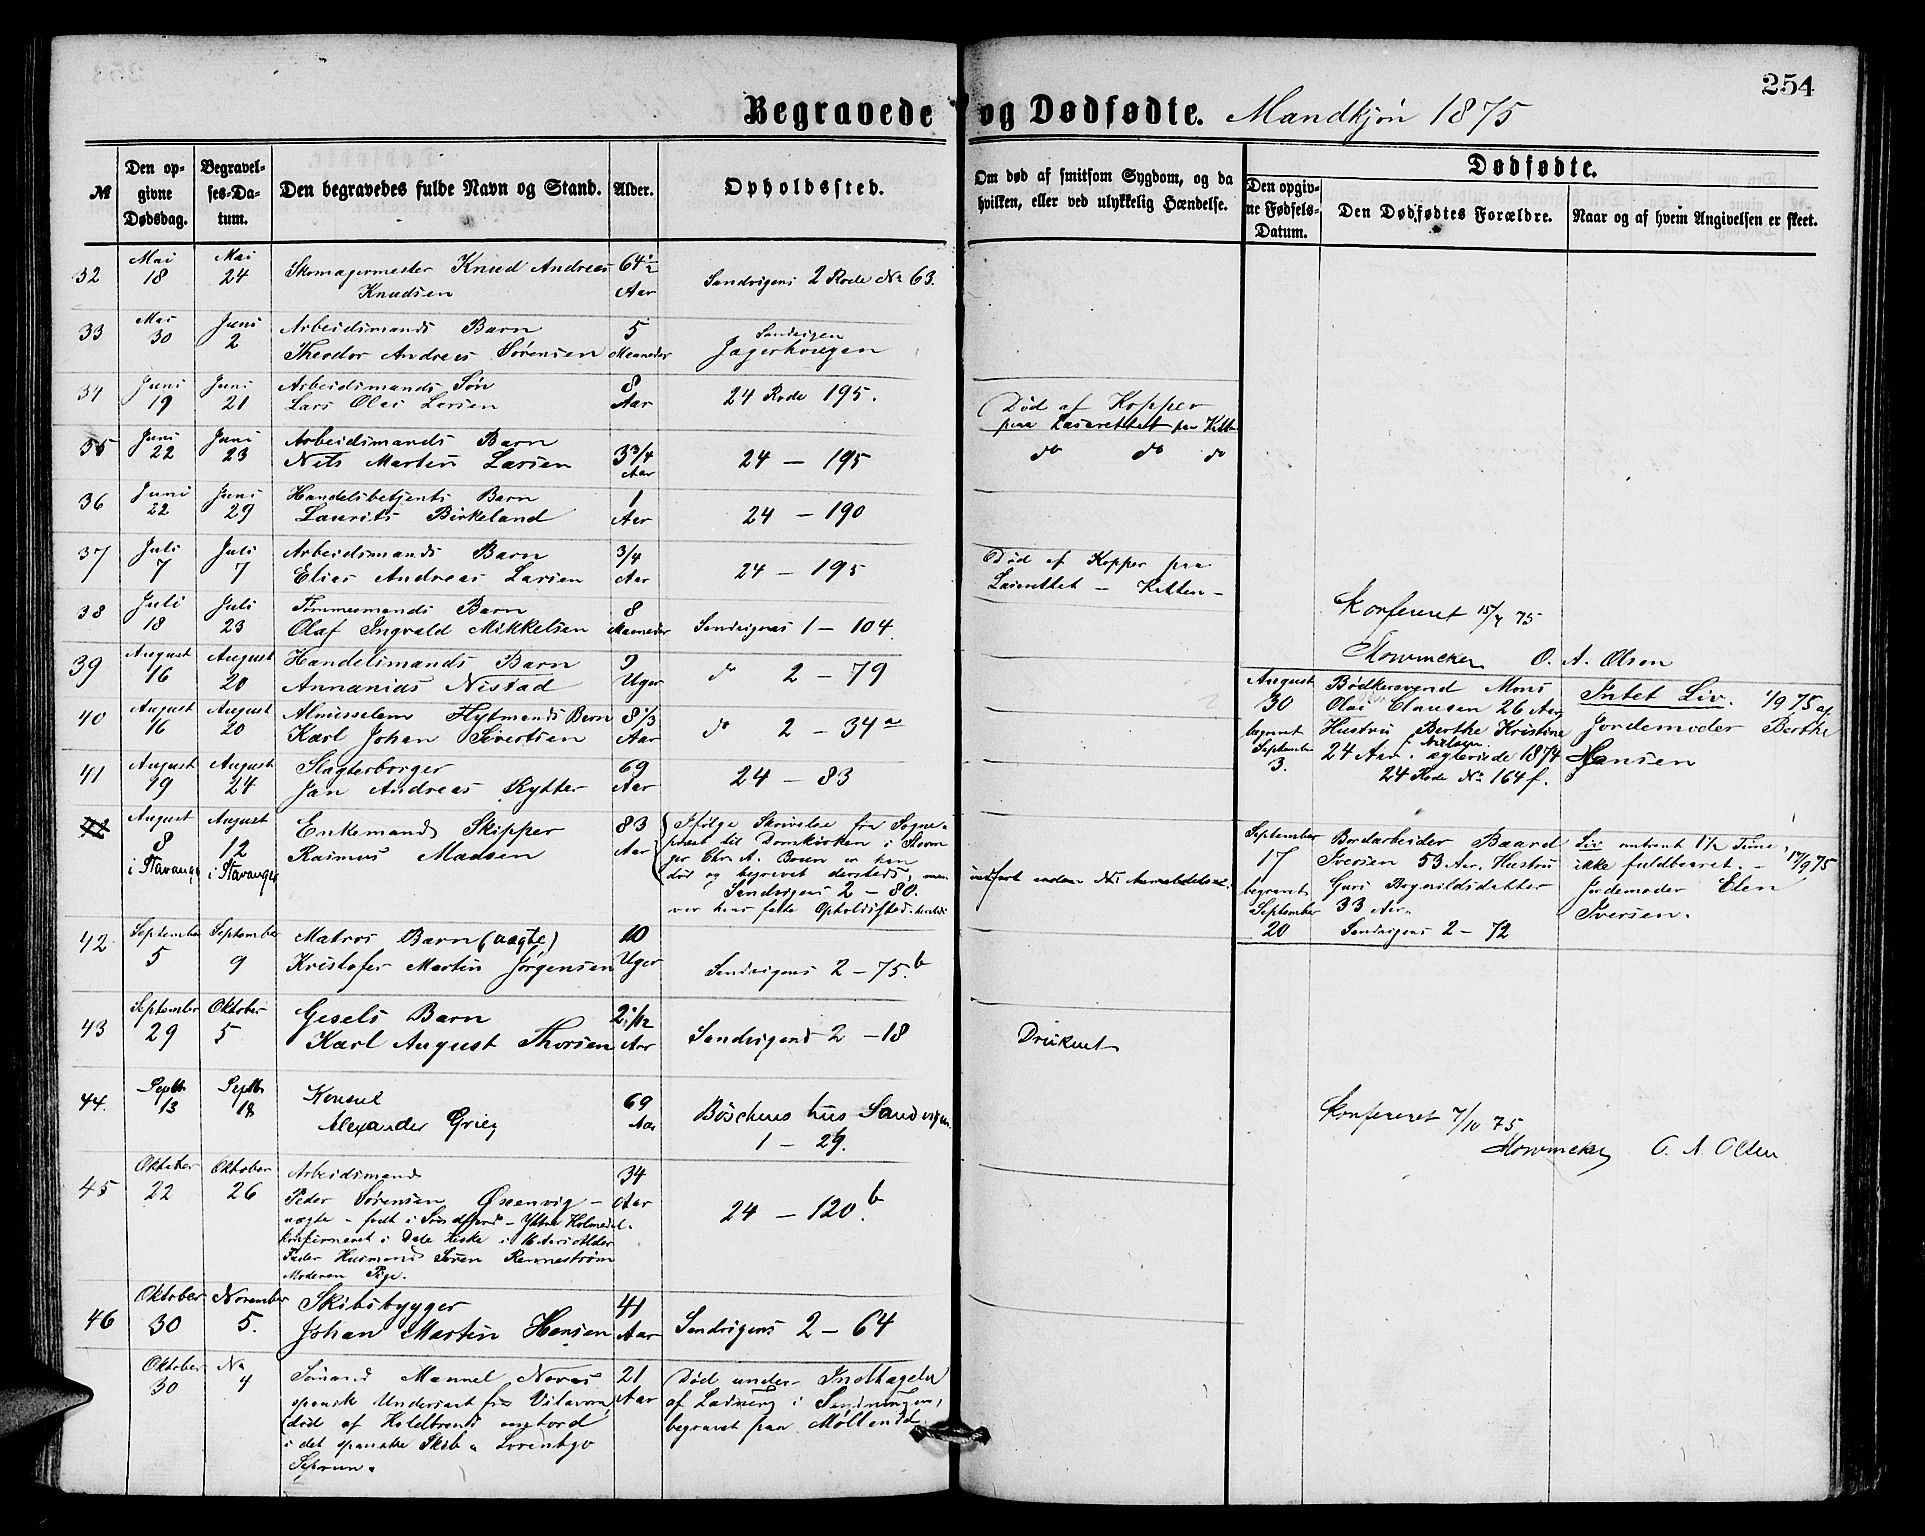 254
Begravede og Dødfødte. Mandkjøn 1875
№
Den opgivne Dødsdag.
Begravelses-Datum.
Den begravedes fulde Navn og Stand.
Alder.
Opholdssted.
Om død af smitsom Sygdom, og da hvilken, eller ved ulykkelig Hændelse.
Dødfødte.
Den opgivne Fødsels-Datum.
Den Dødfødtes Forældre.
Naar og af hvem Angivelsen er skeet.
32 Mai 18 Mai 24 Skomagermester Knud Andreas 64 1/2
Knudsen Aar Sandvigens 2 Rode No 63.
33 Mai 30 Juni 2 Arbeidsmands Barn 5 Sandvigen
Theodor Andreas Sørensen Maaneder Jægerhougen
34 Juni 19 Juni 21 Arbeidsmands Søn 8
Lars Olai Larsen Aar 24 Rode 195.
Død af Kopper
paa Lasarettet paa Kalt
35 Juni 22 Juni 23 Arbeidsmands Barn
Nils Martin Larsen 3 3/4 Aar 24 — 195 do do do
36 Juni 22 Juni 29 Handelsbetjents Barn 1
Laurits Birkeland Aar 24 — 190
37 Juli 7 Juli 7 Arbeidsmands Barn 3/4
Elias Andreas Larsen Aar 24 — 195
Død af Kopper paa
Lasarettet —
38 Juli 18 Juli 23 Tømmermands Barn 8
Olaf Ingvald Mikkelsen Maaneder Sandvigens 1 — 104.
Konfereret 15/7 75
O. A. Olsen
39 August 16 August 20 Handelsmands Barn 9
Annanias Nistad Uger do 2 — 79
40 August 16 August 20 Almisselem Barn 8 1/3
Karl Johan Sivertsen Aar do 2 — 34 a
41 August 19 August 24 Slagterborger 69
Jan Andreas Rytter Aar 24 — 83
August 30
begravet September 3.
Bødkersvend Mons
Olai Clausen 26 Aar
Hustru Berthe Kristine
Nielsen
24 Aar. ægteviede 1874
24 Rode No 164 f.
Intet Liv. 1/9 75 af
Jordemoder Berthe
Hansen
42 August 8 i Stavanger August 12 i Stavanger
Enkemand Skipper 83
Rasmus Madsen Aar
Ifølge Skrivelse fra Sogne-
præst til Domkirken i Stavan-
ger Chr. A. Bosen er han
død og begravet dersteds, men
Sandvigens 2 — 80.
var hans faste Opholdssted.
indført uden No
September 17
begravet September 20
Bordarbeider Baard
Iversen 53 Aar. Hustru
Guri Bognildsdatter
33 Aar.
Sandvigens 2 — 72
Liv omtrent 1 1/2 Time,
ikke fuldbaaret. — 17/9 75
Jordemoder Elen
Iversen.
42 September 5 September 9 Matros Barn (uægte) 10
Kristofer Martin Jørgensen Uger Sandvigens 2 — 75. b
43 September 29 Oktober 5 Gesels Barn 2 1/12
Karl August Thorsen Aar Sandvigens 2 — 18 Druknet
44. Septb 13 Septb 18 Konsul 69
Alexander Grieg Aar Böschens hus Sandvigen.
1 — 29.
Konfereret 7/10 75
O. A. Olsen
45 Oktober 22 Oktober 26 Arbeidsmand 34
Peder Sørensen Øxenvig — Aar 24 — 120. b
uægte — født i Søndfjord — Yttre Holmedal.
konfirmeret i Dale Kirke i 16 Aars Alder
Fader Husmand Søren Rennestrøm
Moderen Pige.
46 Oktober 30 November 5. Skibsbygger 41
Johan Martin Hansen Aar Sandvigens 2 — 64
Oktober 30 No 4 Sømand Manuel Novas 21
spansk Undersaat fra Aar
død af Koldbrand ombord
i det spanske Skib
Død under Indtagelse
af Ladning i Sandvigen,
begravet paa Møllendal.